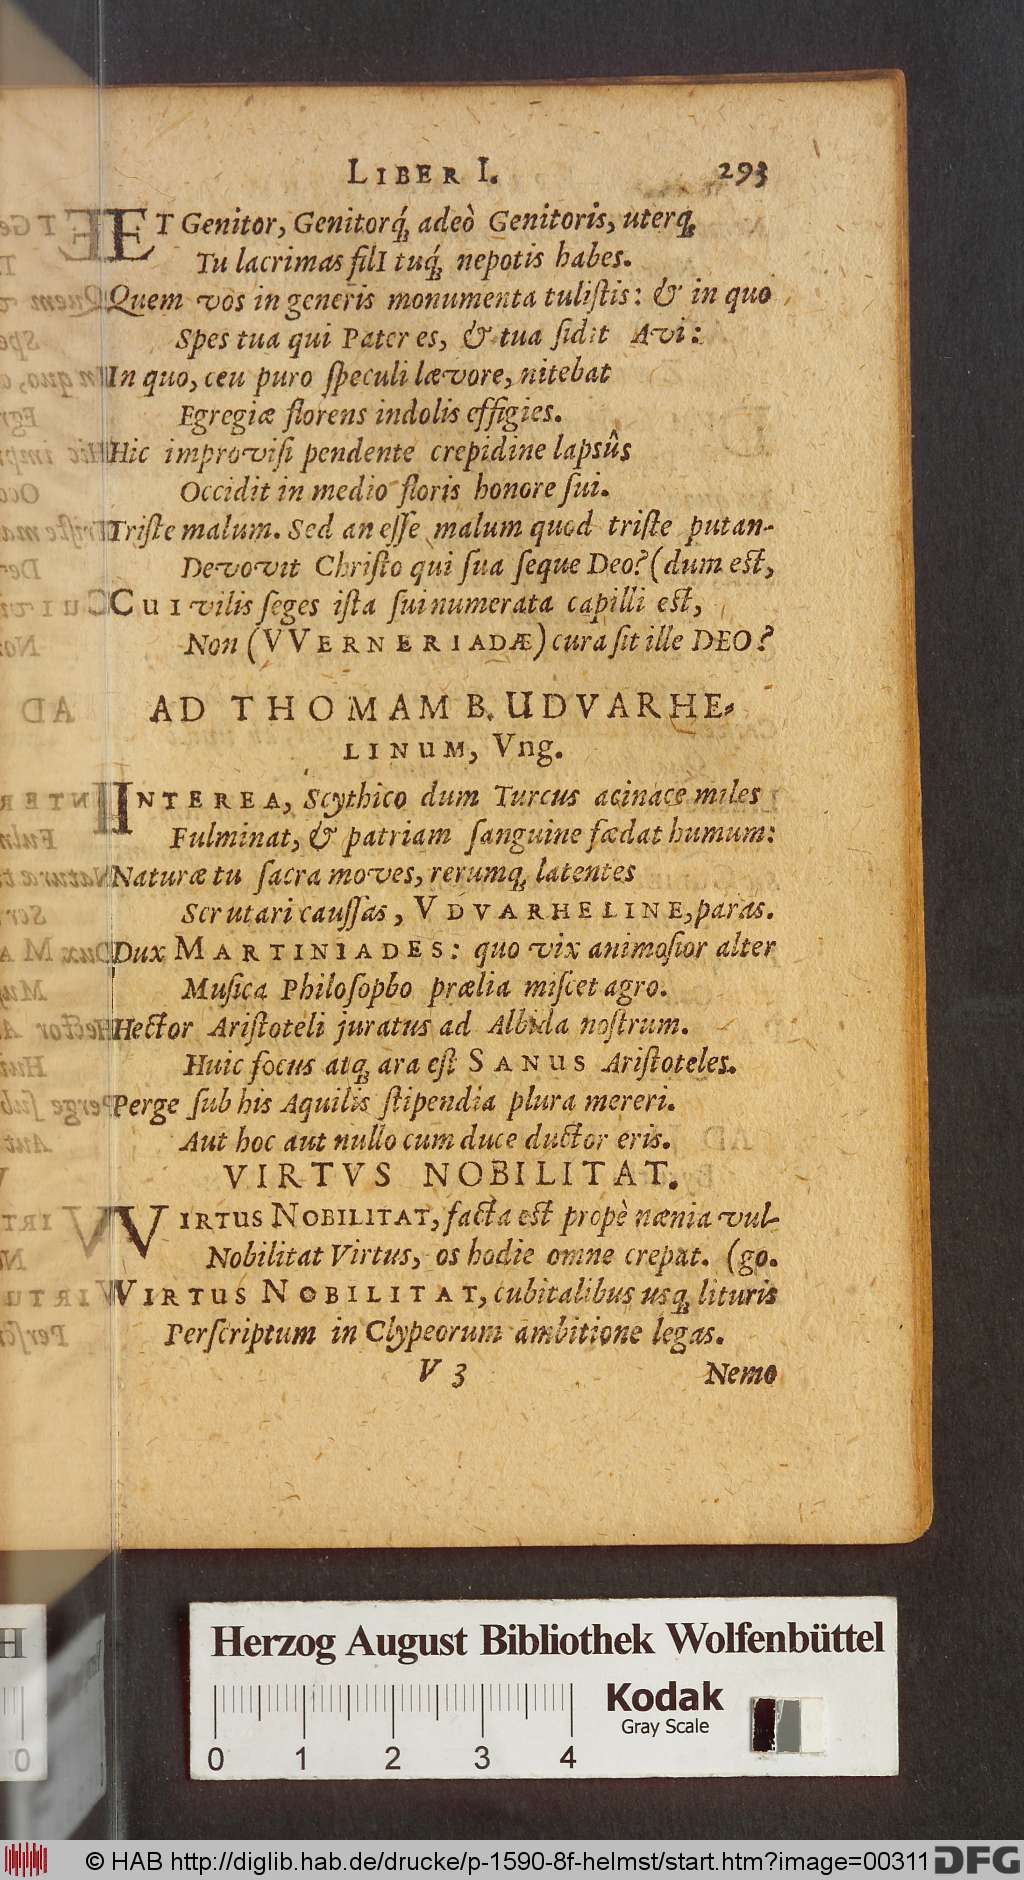 LIBER I. 293
ET Genitor, Genitorq́; adeò Genitoris, uterq;
Tu lacrimas filI tuq́; nepotis habes.
Quem vos in generis monumenta tulistis: & in quo
Spes tua qui Pater es, & tua sidit Avi:
In quo, ceu puro speculi lævore, nitebat
Egregiæ florens indolis effigies.
Hic improvisi pendente crepidine lapsûs
Occidit in medio floris honore sui.
Triste malum. Sed an esse malum quod triste putan-
Devovit Christo qui sua seque Deo? (dum est,
CUI vilis seges ista sui numerata capilli est,
Non (VVERNERIADÆ) cura sit ille DEO?
AD THOMAM B. UDVARHE-
LINUM, Vng.
INTEREA, Scythico dum Turcus acinace miles
Fulminat, & patriam sanguine fœdat humum:
Naturæ tu sacra moves, rerumq; latentes
Scrutari caussas, VDVARHELINE, paras.
Dux MARTINIADES: quo vix animosior alter
Musica Philosopho prælia miscet agro.
Hector Aristoteli juratus ad Albida nostrum.
Huic focus atq; ara est SANUS Aristoteles.
Perge sub his Aquilis stipendia plura mereri.
Aut hoc aut nullo cum duce ductor eris.
VIRTVS NOBILITAT.
VIRTUS NOBILITAT, facta est propè nænia vul-
Nobilitat Virtus, os hodie omne crepat. (go.
VIRTUS NOBILITAT, cubitalibus usq; lituris
Perscriptum in Clypeorum ambitione legas.
V 3 Nemo
Herzog August Bibliothek Wolfenbüttel
Kodak
Gray Scale
0 1 2 3 4
© HAB http://diglib.hab.de/drucke/p-1590-8f-helmst/start.htm?image=00311 DFG